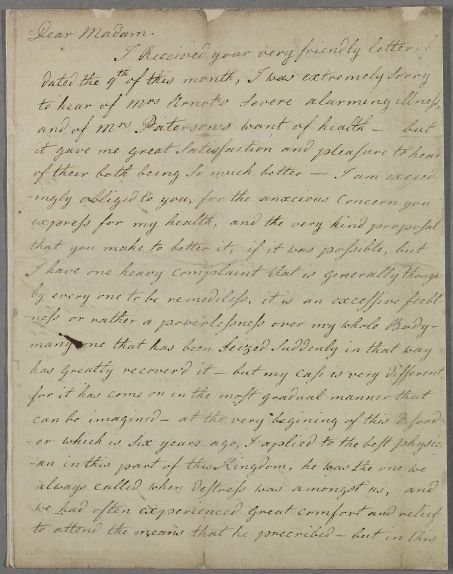 Dear Madam.
I Received your very friendly letter
dated the 9th of this month, I was extremely Sorry
to hear of Mrs Arnots Severe alarming illness,
and of Mrs Patersons want of health — but
it gave me great Satisfaction and pleasure to hear
of their both being So much better — I am exceed-
-ingly obliged to you, for the anxcious Concern you
express for my health, and the very kind proposal
that you make to better it, if it was possible, but
I have one heavy complaint that is generally though
by every one to be remediless, it is an excessive feebl
ness or rather a powerlessness over my whole Body—
many one that has been Seized Suddenly in that way
has Greatly recover'd it — but my case is very different
for it has come on in the most gradual manner that
can be imagined — at the very begining of this disord-
-er which is Six years ago, I aplied to the best physic-
-an in this part of this Kingdom, he was the one we
always called when destress was amongst us, and
we had often experienced Great comfort and relief
to attend the means that he prescribed — but in this